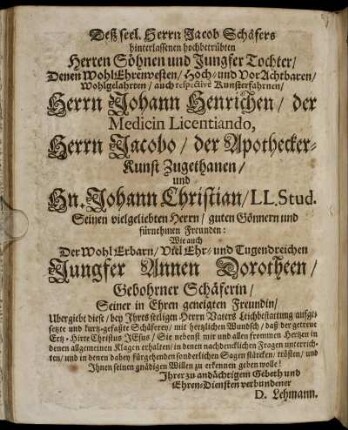 Deß seel. Herrn Jacob Schäfers
hinterlassenen hochbetrübten
Herren Söhnen und Jungfer Tochter/
Denen WohlEhrenvesten/ Hoch- und VorAchtbaren/
Wohlgelahrten/ auch respectivè Kunsterfahrnen/
Herrn Johann Henrichen/ der
Medicin Licentiando,
Herrn Jacobo/ der Apothecker-
Kunst Zugethanen/
und
Hn. Johann Christian/ LL. Stud.
Seinen vielgeliebten Herrn/ guten Gönnern und
fürnehmen Freunden:
Wie auch
Der Wohl Erbarn/ Viel Ehr- und Tugendreichen
Jungfer Annen Dorotheen/
Gebohrner Schäferin/
Seiner in Ehren geneigten Freundin/
Ubergiebt diese/ bey Ihres seeligen Herrn Vaters Leichbestattung auffge-
setzte und kurtz-gefaßte Schäferey/ mit hertzlichen Wundsch/ daß der getreue
Ertz-Hirte Christus JEsus/ Sie nebenst mir und allen frommen Hertzen in
denen allgemeinen Klagen erhalten/ in denen nachdencklichen Fragen unterrich-
ten/ und in denen dabey fürgehenden sonderlichen Sagen stärcken/ trösten/ und
Ihnen seinen gnädigen Willen zu erkennen geben wolle!
Ihrer zu andächtigem Gebeth und
Ehren-Diensten verbundener
D. Lehmann.